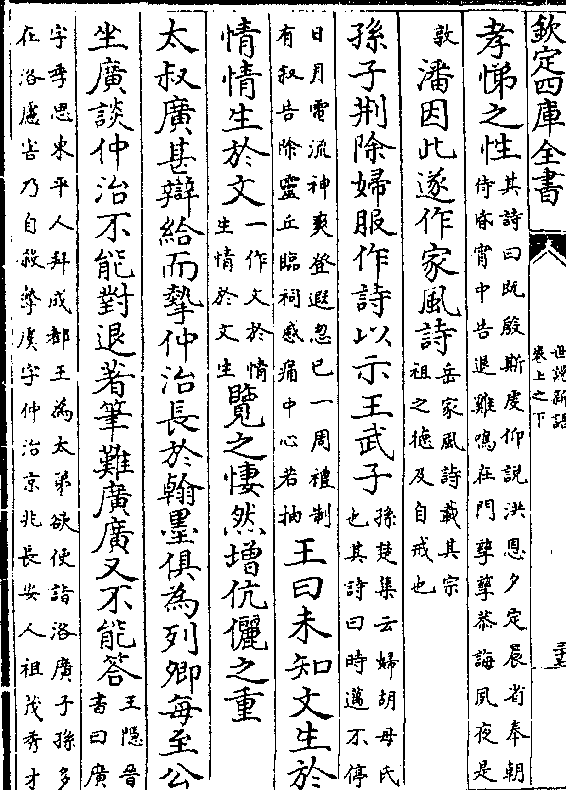 欽定四庫全書
世說新語
卷上之下
孝悌之性其詩曰既殷斯虔仰說洪恩夕定晨省奉朝
侍昏宵中告退雞鳴在門孳孳恭誨夙夜是
敦潘因此遂作家風詩岳家風詩載其宗
祖之徳及自戒也
孫子荆除婦服作詩以示王武子孫楚集云婦胡母氏
也其詩曰時邁不停
日月電流神爽登遐忽已一周禮制
有叙告除靈丘臨祠感痛中心若抽王曰未知文生於
情情生於文一作文於情
生情於文生覽之悽然增伉儷之重
太叔廣甚辯給而摯仲治長於翰墨俱為列卿每至公
坐廣談仲治不能對退著筆難廣廣又不能答王隱晉
書曰廣
字季思東平人拜成都王為太弟欲使詣洛廣子孫多
在洛慮害乃自殺摯虞字仲治京兆長安人祖茂秀才